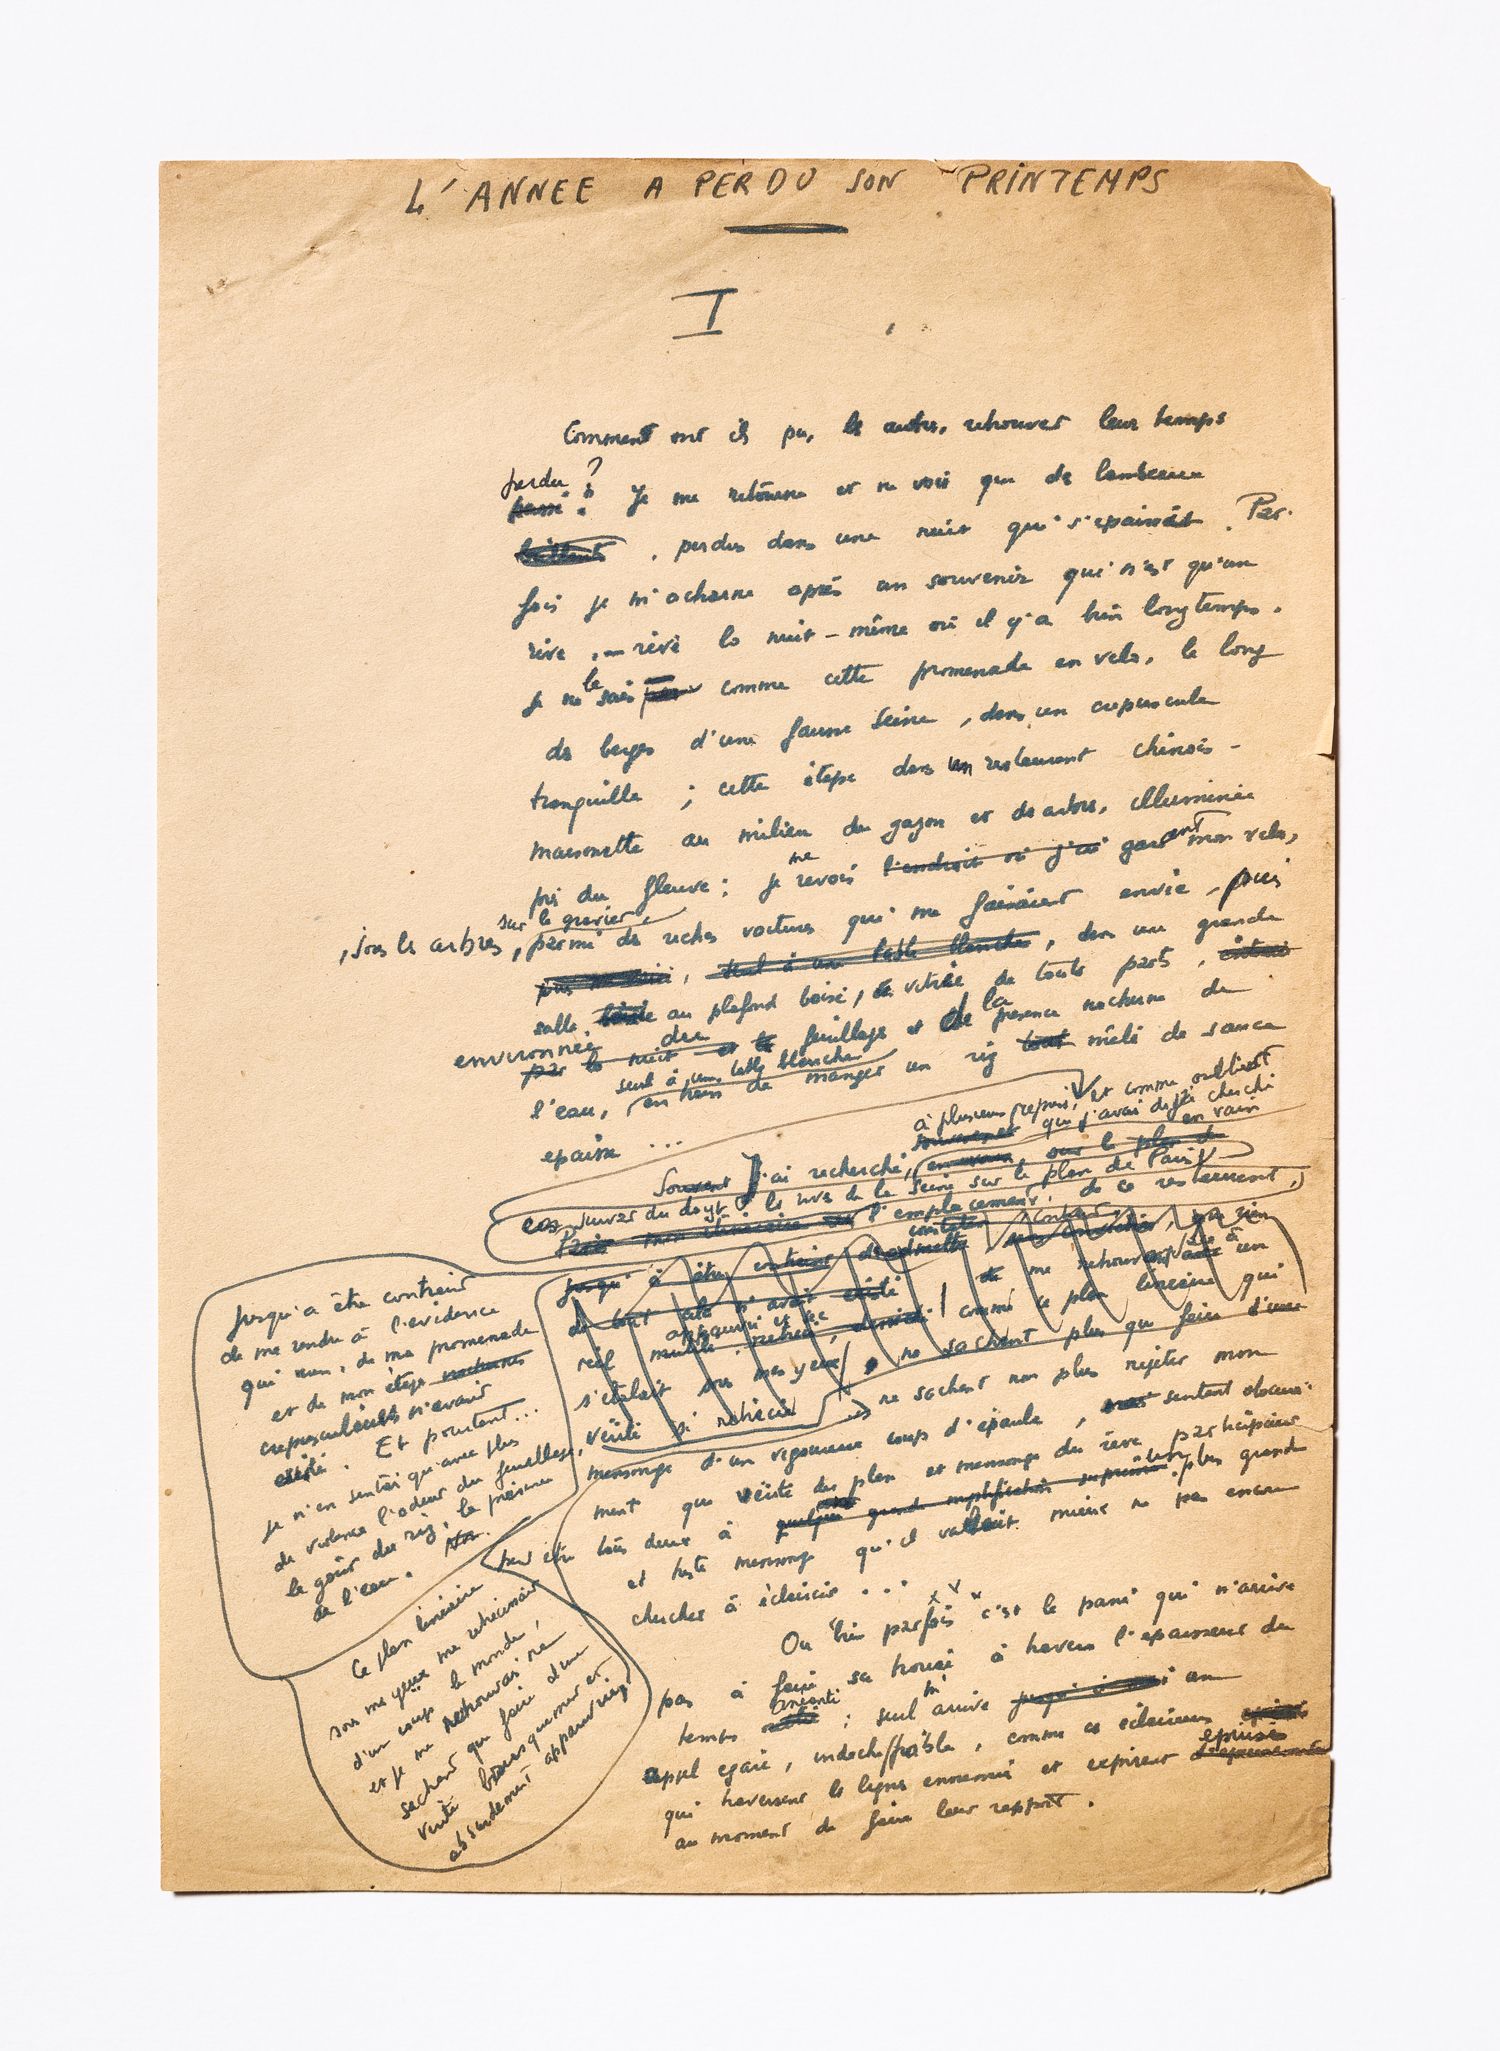 L'ANNEE A PERDU SON PRINTEMPS
I
Comment ont ils pu, les autres, retrouver leur temps
perdu ?
passé ? Je me retourne et ne vois que des lambeaux
brillants, perdus dans une nuit qui s'epaissit. Par-
fois je m'acharne après un souvenir qui n'est qu'un
rêve, rêvé la nuit-même où il y a bien longtemps.
le
Je ne sais pas comme cette promenade en velo, le long
des berges d'une fausse Seine, dans un crepuscule
tranquille ; cette étape dans un restaurant chinois -
maisonnette au milieu du gazon et des arbres, illuminée
près du fleuve : je me revois l'endroit où j'ai garant mon velo,
sur le gravier
, sous les arbres, parmi de riches voitures qui me faisaient envie, puis
, seul à une table blanche, dans une grande
salle, au plafond boisé, vitrée de toute part,
environnée des la
par la nuit et le feuillage et de presence nocturne de
seul à une table blanche
l'eau, en train de manger un riz tout mêlé de sauce
epaisse ...
à plusieurs reprises, et comme oubliant
que j'avais dejà cherché
en vain
Souvent J'ai recherché, sur le plan de
à suivre du doigt les rives de la Seine sur le plan de Paris
l'emplacement de ce restaurant,
Jusqu'à être contraint d'admettre
de tout cela n'avait existé
me retrouvais
réel comme ce plan linéaire qui
s'étalait sous mes yeux, ne sachant plus que faire d'une
vérité si rétrécie ne sachant non plus rejeter mon
mensonge d'un vigoureux coup d'épaule, sentant obscuré-
ment que vérité du plan et mensonge du rêve participaient
tous deux à quelque grande mystification plus grand
et triste mensonge qu'il valait mieux ne pas encore
chercher à éclaircir ...
Ou bien parfois c'est le passé qui n'arrive
pas à faire sa trouée à travers l'épaisseur du
anéanti
temps ; seul m'arrive un
appel egaré, indechiffrable, comme ces éclaireurs
epuisés
qui traversent les lignes ennemies et expirent d'epuisement
au moment de faire leur rapport.
Jusqu'à être contraint
de me rendre à l'evidence
que rien, de ma promenade
et de mon étape nocturnes
crepusculaires n'avait
existé. Et pourtant...
je n'en sentais qu'avec plus
de violence l'odeur du feuillage,
le goût du riz, la présence
de l'eau.
Ce plan linéaire
sous mes yeux me rétrécissait
d'un coup le monde,
et je me retrouvais ne
sachant que faire d'une
verité brusquement et
absurdement apparue